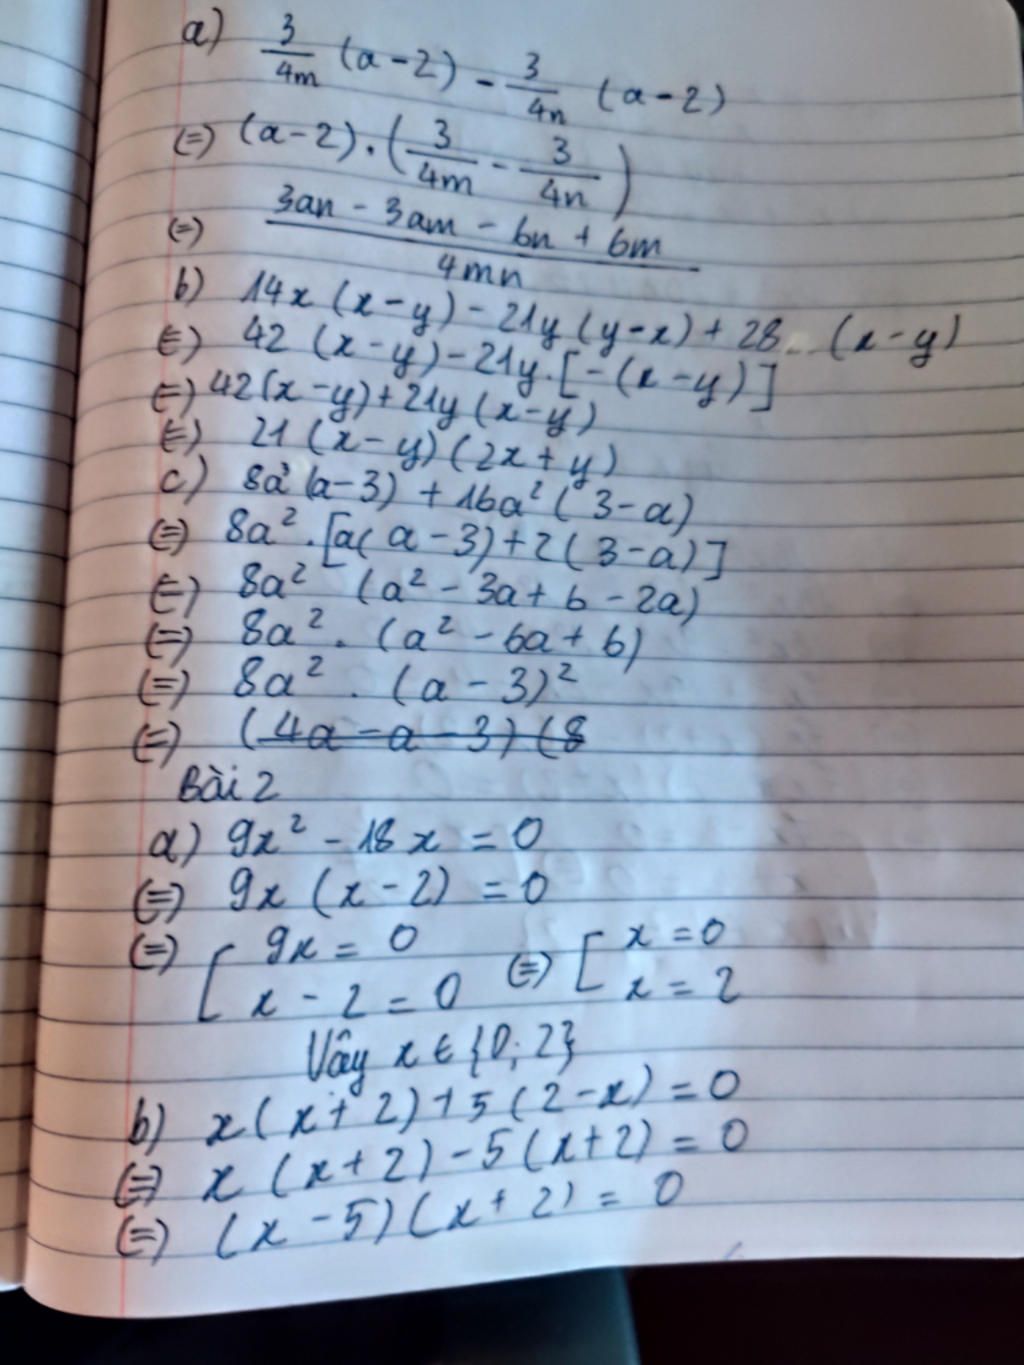 a) 3/4m (a-2) - 3/4n (a-2)
(=) (a-2).(3/4m - 3/4n)
(=) (3an - 3am - 6n + 6m)/4mn
b) 14x(x-y) - 21y(y-x) + 28 (x-y)
(=) 42 (x-y) - 21y.[-(x-y)]
(=) 42(x-y) + 21y(x-y)
(=) 21(x-y)(2x+y)
c) 8a³(a-3) + 16a²(3-a)
(=) 8a².[a(a-3)+2(3-a)]
(=) 8a² (a² - 3a + 6 - 2a)
(=) 8a². (a² - 6a + 6)
(=) 8a² . (a-3)²
(=) (4a - a - 3)(8
Bài 2
a) 9x² - 18x = 0
(=) 9x (x-2) = 0
(=) [ 9x = 0 (=) [ x = 0
x - 2 = 0 x = 2
Vây x ∈ {0; 2}
b) x(x+2)+5(2-x) = 0
(=) x (x+2) - 5(x+2) = 0
(=) (x-5)(x+2) = 0